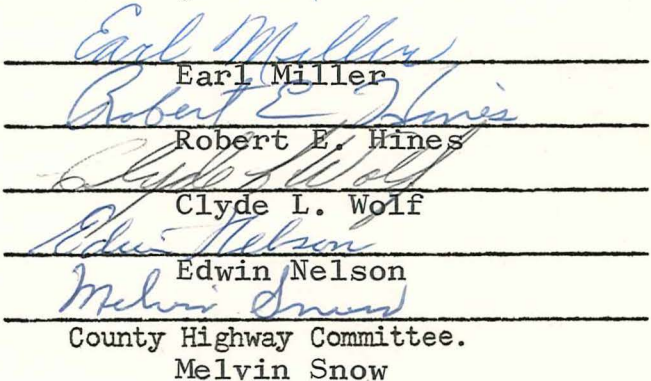 Earl Miller
Earl Miller
Robert E Hines
Robert E. Hines
Clyde L Wolf
Clyde L. Wolf
Edwin Nelson
Edwin Nelson
Melvin Snow
County Highway Committee.
Melvin Snow